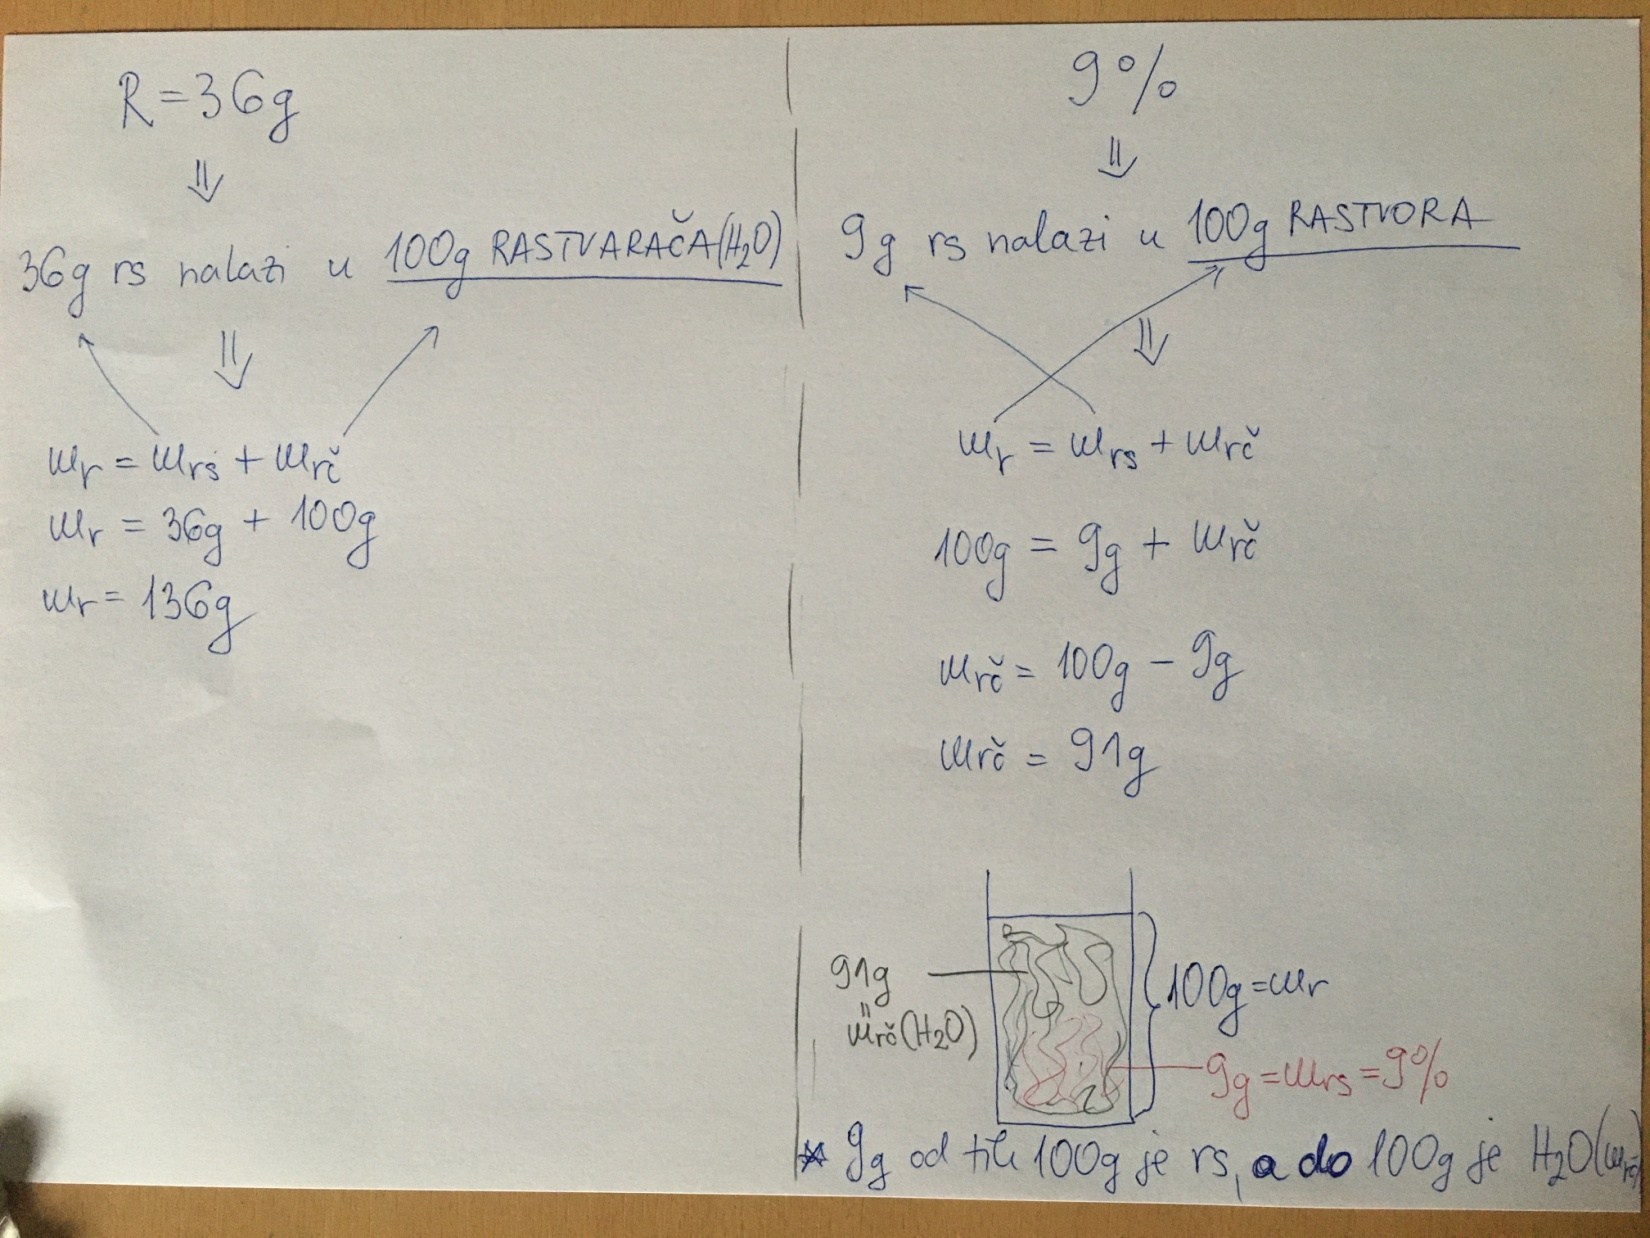 R = 36g
⇓
36g rs nalazi u 100g RASTVARAČA (H₂O)
⇓
mr = mrs + mrč
mr = 36g + 100g
mr = 136g
9%
⇓
9g rs nalazi u 100g RASTVORA
⇓
mr = mrs + mrč
100g = 9g + mrč
mrč = 100g - 9g
mrč = 91g
91g
=
mrč (H₂O)
100g = mr
9g = mrs = 9%
* 9g od tih 100g je rs, a do 100g je H₂O (mrč)